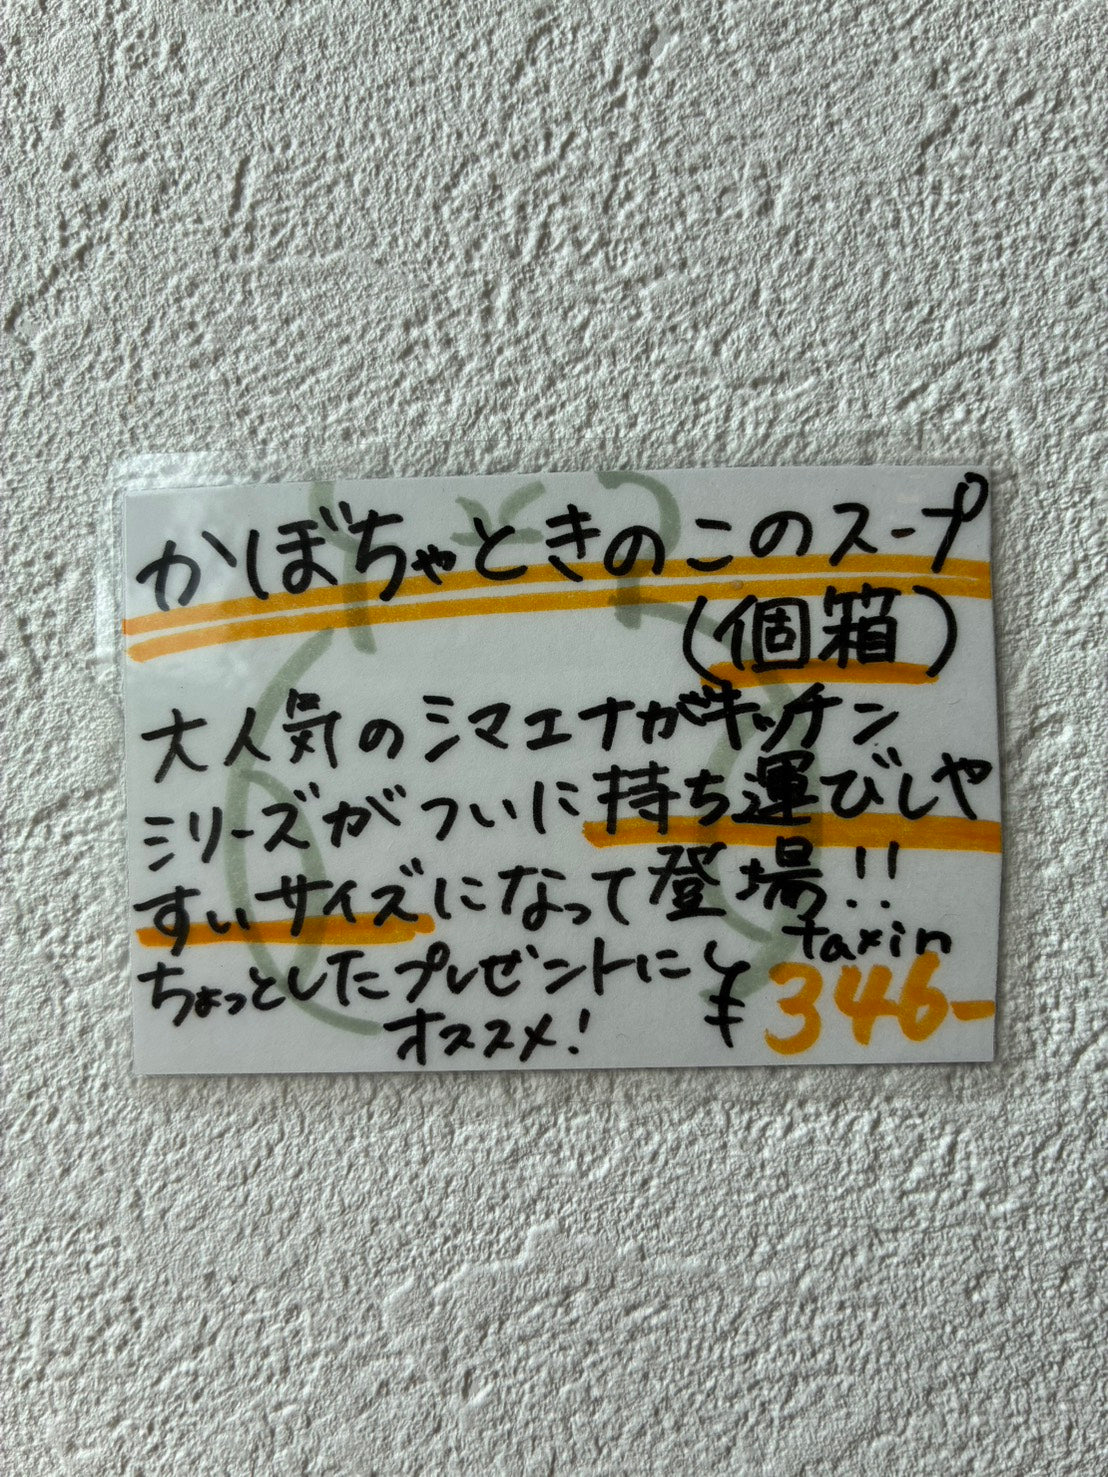 かぼちゃときのこのスープ
(個箱)
大人気のシマエナガキッチン
シリーズがついに持ち運びしや
すいサイズになって登場!!
ちょっとしたプレゼントに
オススメ!
taxin
¥346-